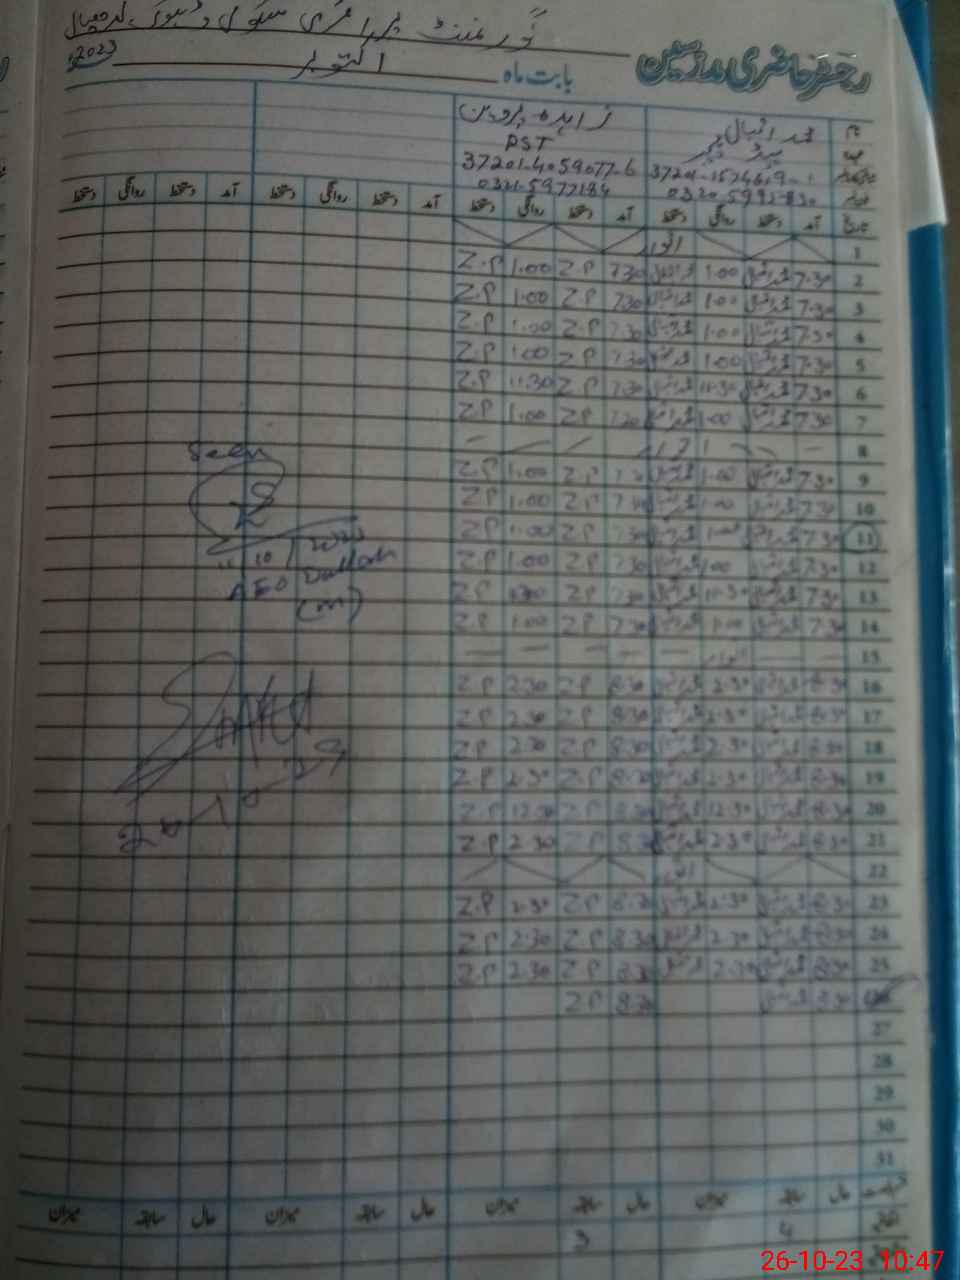 گورنمنٹ پرائمری سکول
رجسٹر حاضری مدرسین بابت ماہ اکتوبر 2023ء
نام محمد اقبال زاہدہ پروین
عہدہ ہیڈ ٹیچر PST
37201-4059077-6
0321-5977184
تاریخ آمد دستخط روانگی دستخط آمد دستخط روانگی دستخط آمد دستخط روانگی دستخط آمد دستخط روانگی دستخط
1 اتوار
2 7.30 محمد اقبال 1.00 محمد اقبال 7.30 Z.P 1.00 Z.P
3 7.30 محمد اقبال 1.00 محمد اقبال 7.30 Z.P 1.00 Z.P
4 7.30 محمد اقبال 1.00 محمد اقبال 7.30 Z.P 1.00 Z.P
5 7.30 محمد اقبال 1.00 محمد اقبال 7.30 Z.P 1.00 Z.P
6 7.30 محمد اقبال 11.30 محمد اقبال 7.30 Z.P 11.30 Z.P
7 7.30 محمد اقبال 1.00 محمد اقبال 7.30 Z.P 1.00 Z.P
8 اتوار
9 7.30 محمد اقبال 1.00 محمد اقبال 7.30 Z.P 1.00 Z.P
10 7.30 محمد اقبال 1.00 محمد اقبال 7.30 Z.P 1.00 Z.P
11 7.30 محمد اقبال 1.00 محمد اقبال 7.30 Z.P 1.00 Z.P
12 7.30 محمد اقبال 1.00 محمد اقبال 7.30 Z.P 1.00 Z.P
13 7.30 محمد اقبال 11.30 محمد اقبال 7.30 Z.P Z.P
14 7.30 محمد اقبال 1.00 محمد اقبال 7.30 Z.P 1.00 Z.P
15 اتوار
16 8.30 محمد اقبال 2.30 محمد اقبال 8.30 Z.P 2.30 Z.P
17 8.30 محمد اقبال 2.30 محمد اقبال 8.30 Z.P 2.30 Z.P
18 8.30 محمد اقبال 2.30 محمد اقبال 8.30 Z.P 2.30 Z.P
19 8.30 محمد اقبال 2.30 محمد اقبال 8.30 Z.P 2.30 Z.P
20 8.30 محمد اقبال 12.30 محمد اقبال 8.30 Z.P 12.30 Z.P
21 8.30 محمد اقبال 2.30 محمد اقبال 8.30 Z.P 2.30 Z.P
22 اتوار
23 8.30 محمد اقبال 2.30 محمد اقبال 8.30 Z.P 2.30 Z.P
24 8.30 محمد اقبال 2.30 محمد اقبال 8.30 Z.P 2.30 Z.P
25 8.30 محمد اقبال 2.30 محمد اقبال 8.30 Z.P 2.30 Z.P
26 8.30 محمد اقبال 8.30 Z.P
27
28
29
30
31
Seen
AEO
(M)
حال سابقہ میزان حال سابقہ میزان حال سابقہ میزان حال سابقہ میزان
4 3
26-10-23 10:47